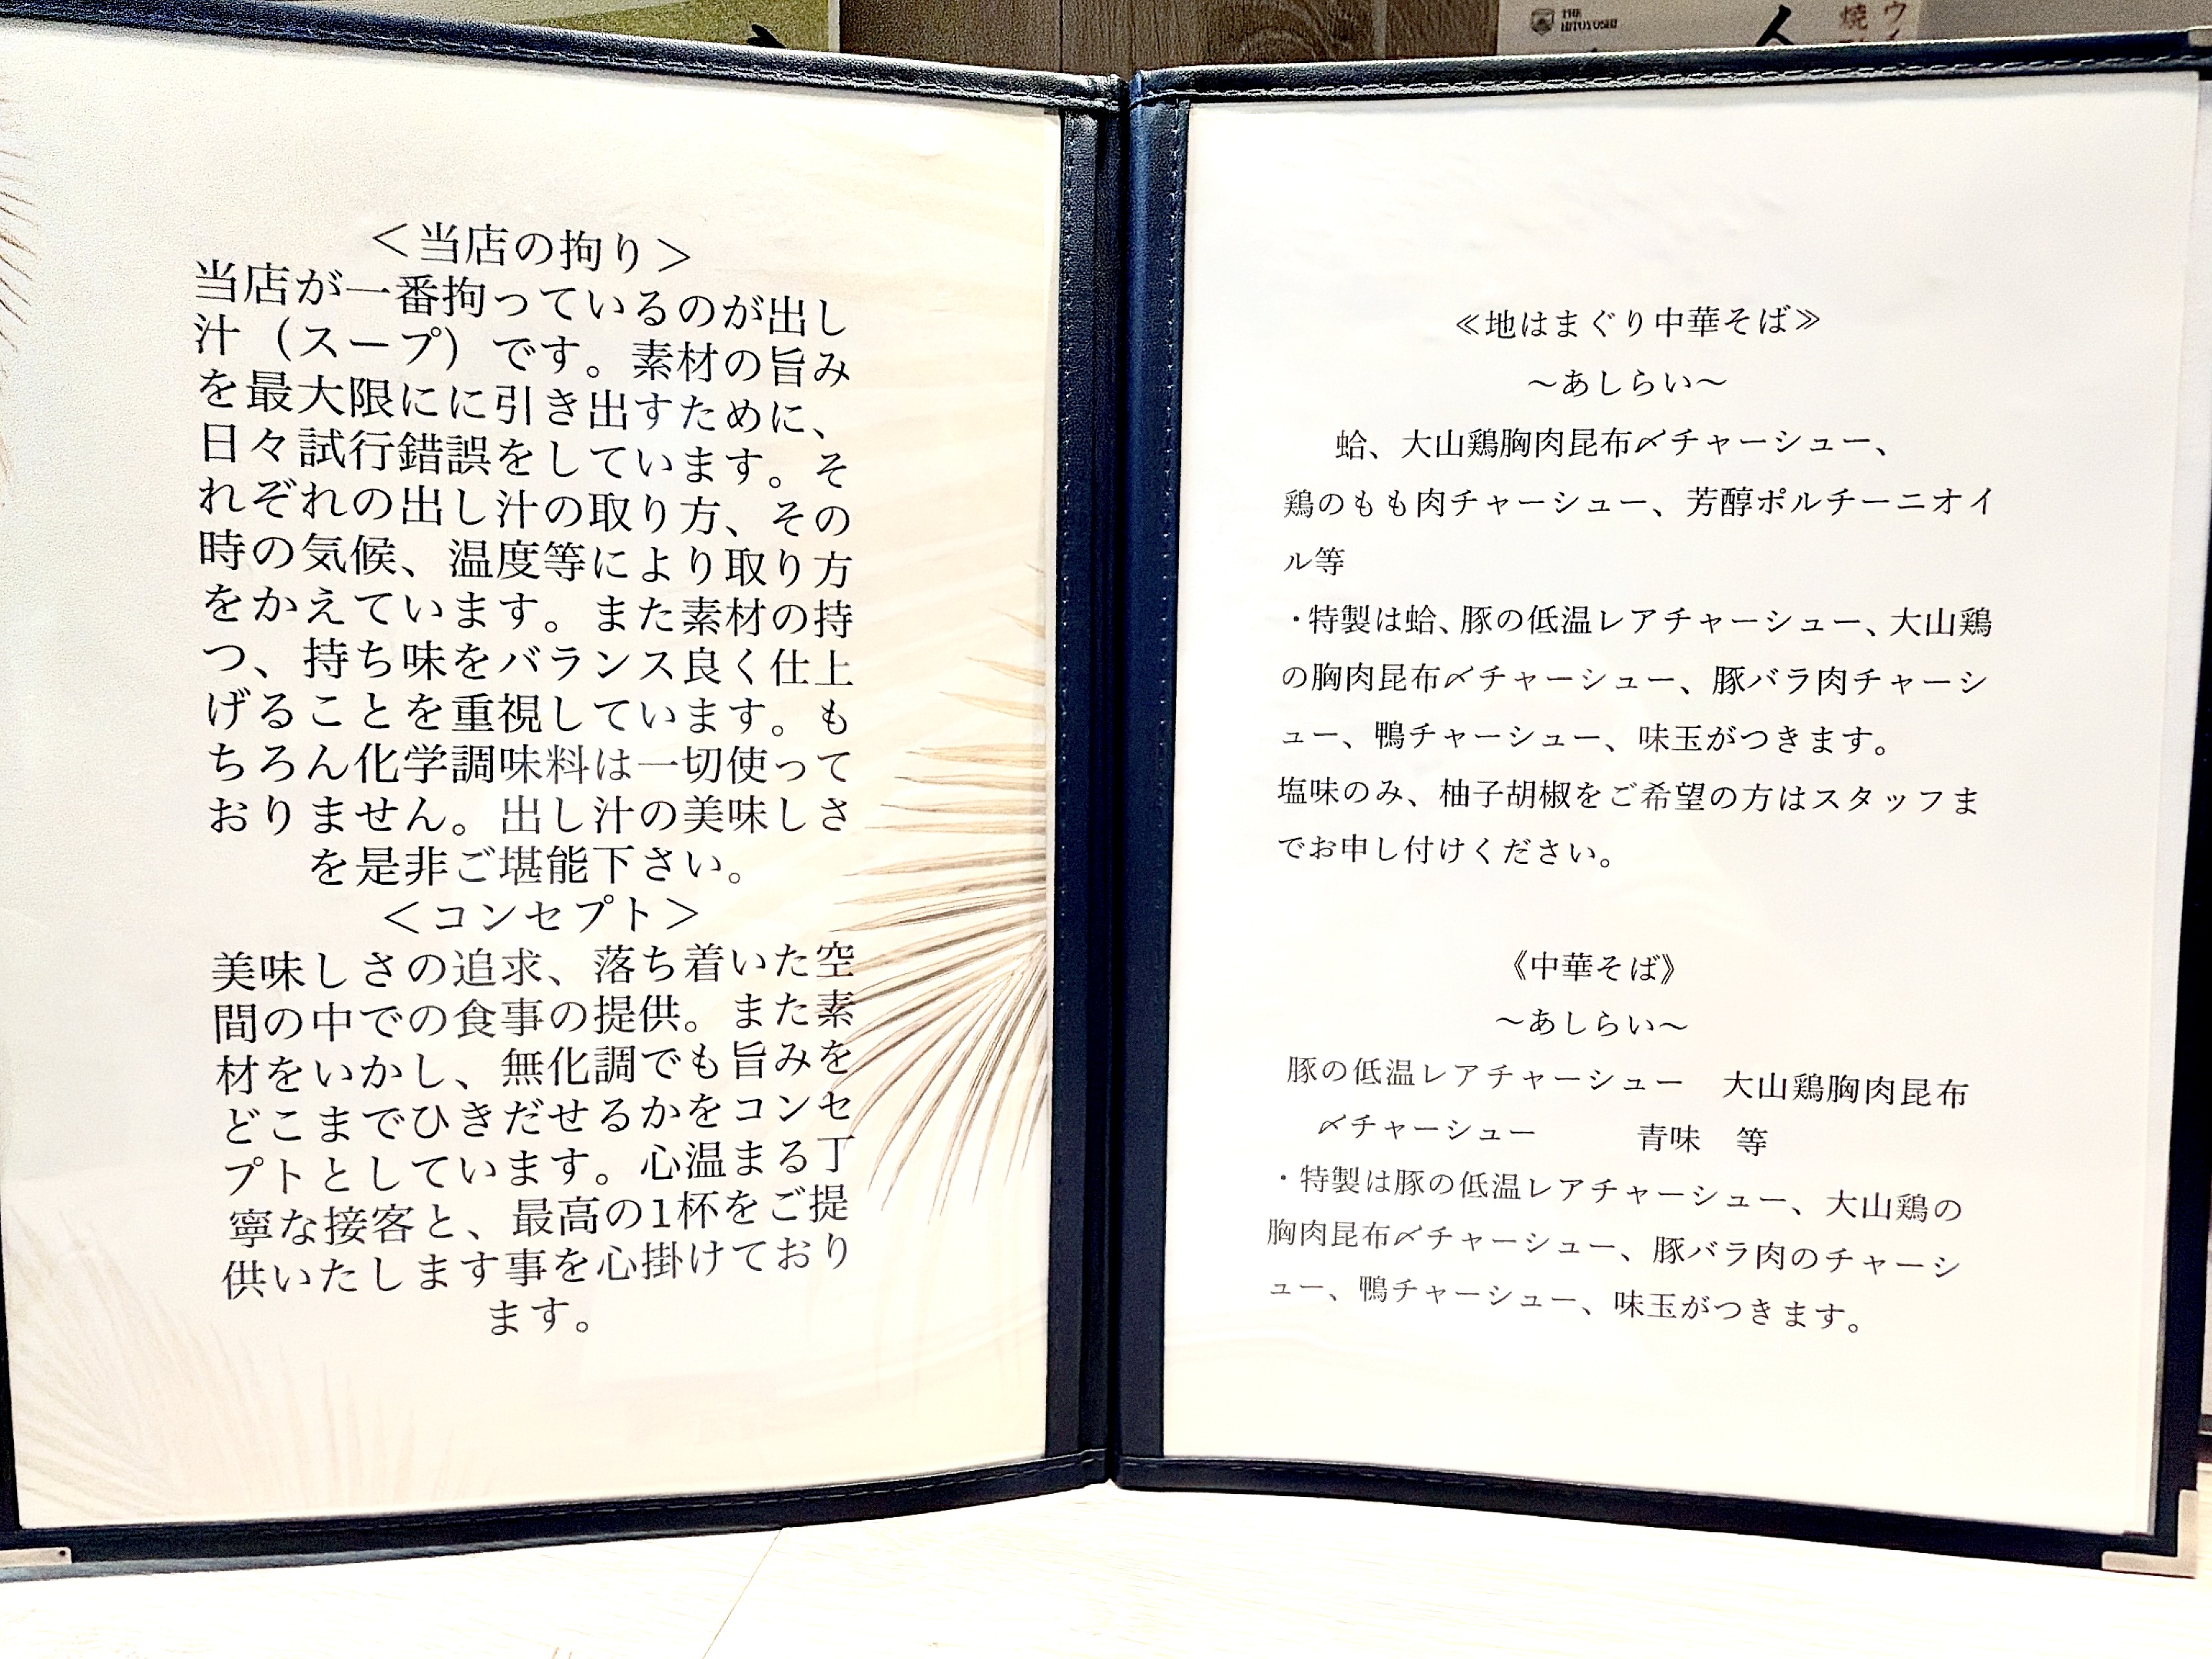 THE
HITOYOSHI
＜当店の拘り＞
当店が一番拘っているのが出し
汁（スープ）です。素材の旨み
を最大限にに引き出すために、
日々試行錯誤をしています。そ
れぞれの出し汁の取り方、その
時の気候、温度等により取り方
をかえています。また素材の持
つ、持ち味をバランス良く仕上
げることを重視しています。も
ちろん化学調味料は一切使って
おりません。出し汁の美味しさ
を是非ご堪能下さい。
＜コンセプト＞
美味しさの追求、落ち着いた空
間の中での食事の提供。また素
材をいかし、無化調でも旨みを
どこまでひきだせるかをコンセ
プトとしています。心温まる丁
寧な接客と、最高の1杯をご提
供いたします事を心掛けており
ます。
≪地はまぐり中華そば≫
～あしらい～
蛤、大山鶏胸肉昆布〆チャーシュー、
鶏のもも肉チャーシュー、芳醇ポルチーニオイ
ル等
・特製は蛤、豚の低温レアチャーシュー、大山鶏
の胸肉昆布〆チャーシュー、豚バラ肉チャーシ
ュー、鴨チャーシュー、味玉がつきます。
塩味のみ、柚子胡椒をご希望の方はスタッフま
でお申し付けください。
《中華そば》
～あしらい～
豚の低温レアチャーシュー　大山鶏胸肉昆布
〆チャーシュー　　　青味　等
・特製は豚の低温レアチャーシュー、大山鶏の
胸肉昆布〆チャーシュー、豚バラ肉のチャーシ
ュー、鴨チャーシュー、味玉がつきます。